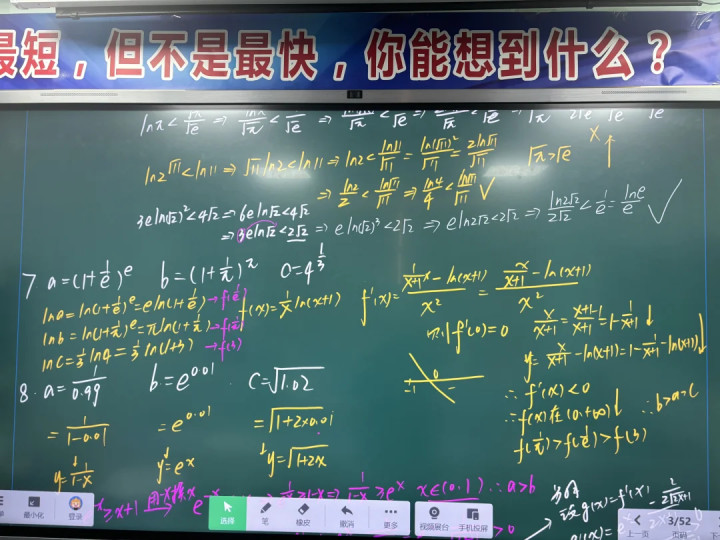 最短，但不是最快，你能想到什么？
ln2^√11 < ln11 ⇒ √11 ln2 < ln11 ⇒ ln2 < ln11/√11 = ln(√11)²/√11 = 2ln√11/√11
√π > √e
x
⇒ ln2/2 < ln√11/√11 ⇒ ln4/4 < ln√11/√11 ✓
3eln(√2)² < 4√2 ⇒ 6eln√2 < 4√2
⇒ 3eln√2 < 2√2 ⇒ eln(√2)³ < 2√2 ⇒ eln2√2 < 2√2 ⇒ ln2√2/2√2 < 1/e = lne/e ✓
7 a=(1+1/e)^e b=(1+1/π)^π c=4^(1/3)
lna = ln(1+1/e)^e = eln(1+1/e) → f(1/e)
lnb = ln(1+1/π)^π = πln(1+1/π) → f(1/π)
lnc = 1/3 ln4 = 1/3 ln(1+3) → f(3)
f(x) = 1/x ln(x+1)
f'(x) = (1/(x+1)·x - ln(x+1))/x² = (x/(x+1) - ln(x+1))/x²
f'(0)=0
x/(x+1) = (x+1-1)/(x+1) = 1-1/(x+1) ↓
y = x/(x+1) - ln(x+1) = 1-1/(x+1) - ln(x+1) ↓
-1 0 -
∴ f'(x)<0
∴ f(x)在(0,+∞)↓
f(1/π)>f(1/e)>f(3)
∴ b>a>c
8. a=1/0.99 b=e^0.01 c=√1.02
=1/(1-0.01) =e^0.01 =√(1+2×0.01)
↓ ↓ ↓
y=1/(1-x) y=e^x y=√(1+2x)
≥x+1 用-x换x
≥1-x ⇒ 1/(1-x) ≥ e^x x∈(0,1) ∴a>b
设g(x)=f'(x)
最小化
登录
选择
笔
橡皮
撤消
更多
视频展台
手机投屏
上一页
3/52
页码